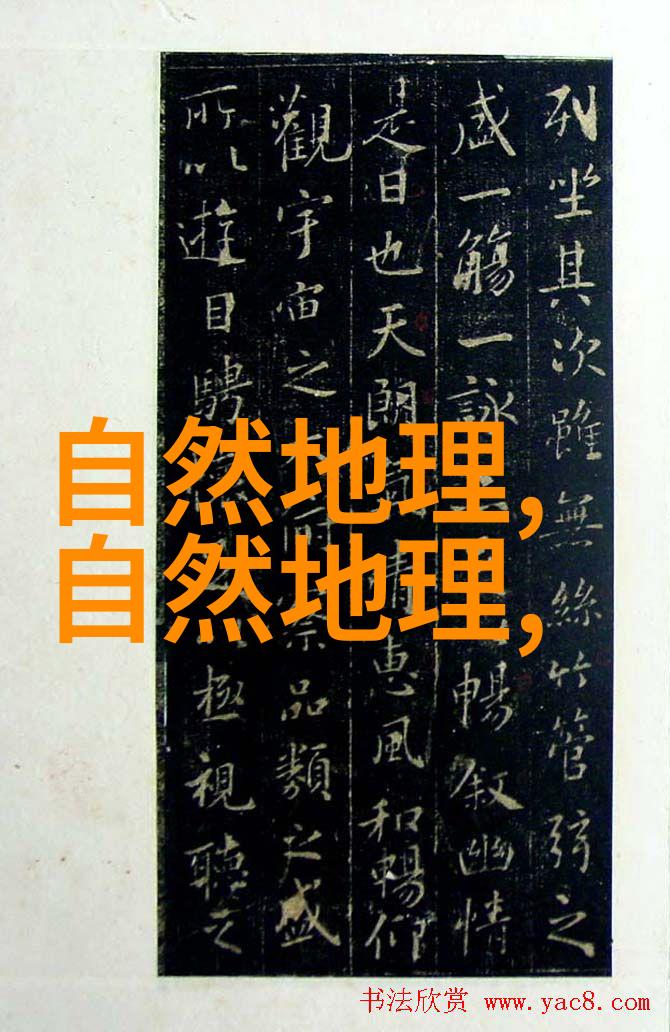 列坐其次雖無絲竹管弦之
盛一觴一詠暢叙幽情
是日也天朗清惠風和暢仰
觀宇宙之察品類之盛
所以遊目騁極視聽之
自然地理,
自然地理,
书法欣赏 www.yac8.com